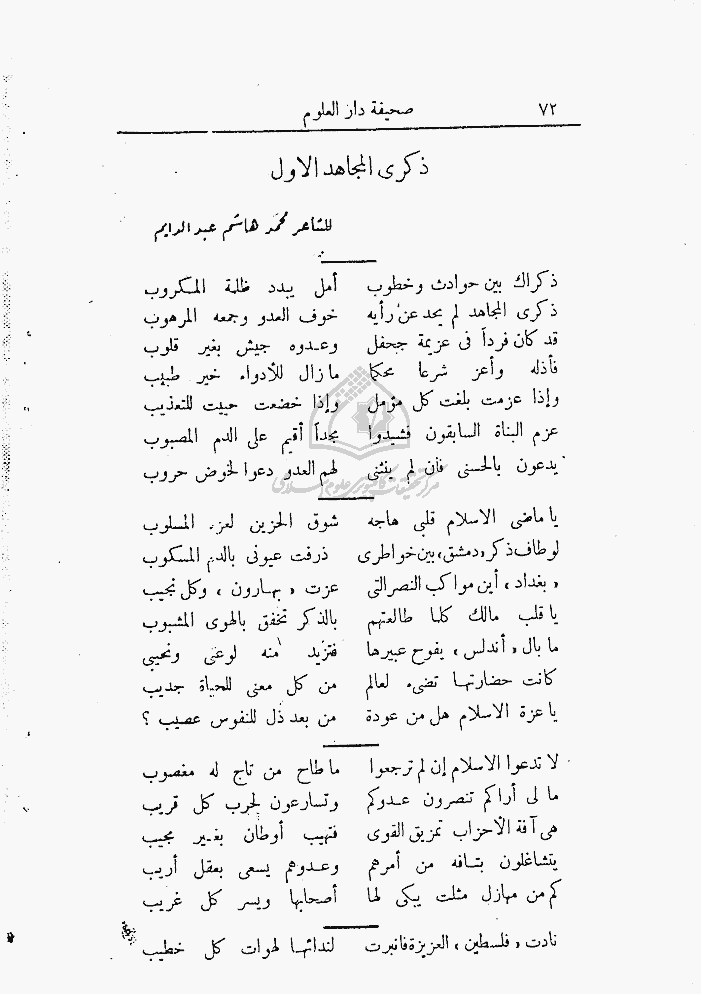 ٧٢ صحيفة دار العلوم
ذكرى المجاهد الاول
للشاعر محمد هاشم عبد الدايم
ذكراك بين حوادث وخطوب أمل يبدد ظلمة المكروب
ذكرى المجاهد لم يحد عن رأيه خوف العدو وجمعه المرهوب
قد كان فرداً فى عزيمة جحفل وعدوه جيش بغير قلوب
فأذله وأعز شرعا محكما مازال للأدواء خير طبيب
وإذا عزمت بلغت كل مؤمل وإذا خضعت حييت للتعذيب
عزم البناة السابقون فشيدوا مجداً أقيم على الدم المصبوب
يدعون بالحسنى فان لم ينثنى لهم العدو دعوا لخوض حروب
يا ماضى الاسلام قلبى هاجه شوق الحزين لعزه المسلوب
لوطاف ذكر «دمشق» بين خواطرى ذرفت عيونى بالدم المسكوب
«بغداد» أين مواكب النصر التى عزت «بهارون» وكل نجيب
يا قلب مالك كلما طالعتهم بالذكر تخفق بالهوى المشبوب
ما بال «أندلس» يفوح عبيرها فتزيد منه لوعتى ونحيبى
كانت حضارتها تضىء لعالم من كل معنى للحياة جديب
يا عزة الاسلام هل من عودة من بعد ذل للنفوس عصيب ؟
لا تدعوا الاسلام إن لم ترجعوا ما طاح من تاج له مغصوب
ما لى أراكم تنصرون عدوكم وتسارعون لحرب كل قريب
هى آفة الأحزاب تمزيق القوى فتهيب أوطان بغير مجيب
يتشاغلون بتافه من أمرهم وعدوهم يسعى بعقل أريب
كم من مهازل مثلت يبكى لها أصحابها ويسر كل غريب
نادت «فلسطين» العزيزة فانبرت لندائها لهوات كل خطيب
مركز تحقيقات كامپيوترى علوم اسلامى